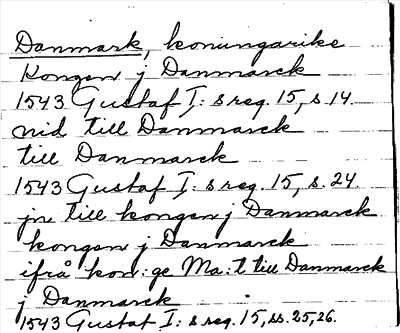 Danmark, konungarike
Kongen j Danmarck
1543 Gustaf I: s reg. 15, s. 14.
nid till Danmarck
till Danmarck
1543 Gustaf I: s reg. 15, s. 24.
jn till kongen j Danmarck
kongen j Danmarck
ifrå kon:ge Ma:t till Danmarck
j Danmarck
1543 Gustaf I: s reg. 15, ss. 25, 26.